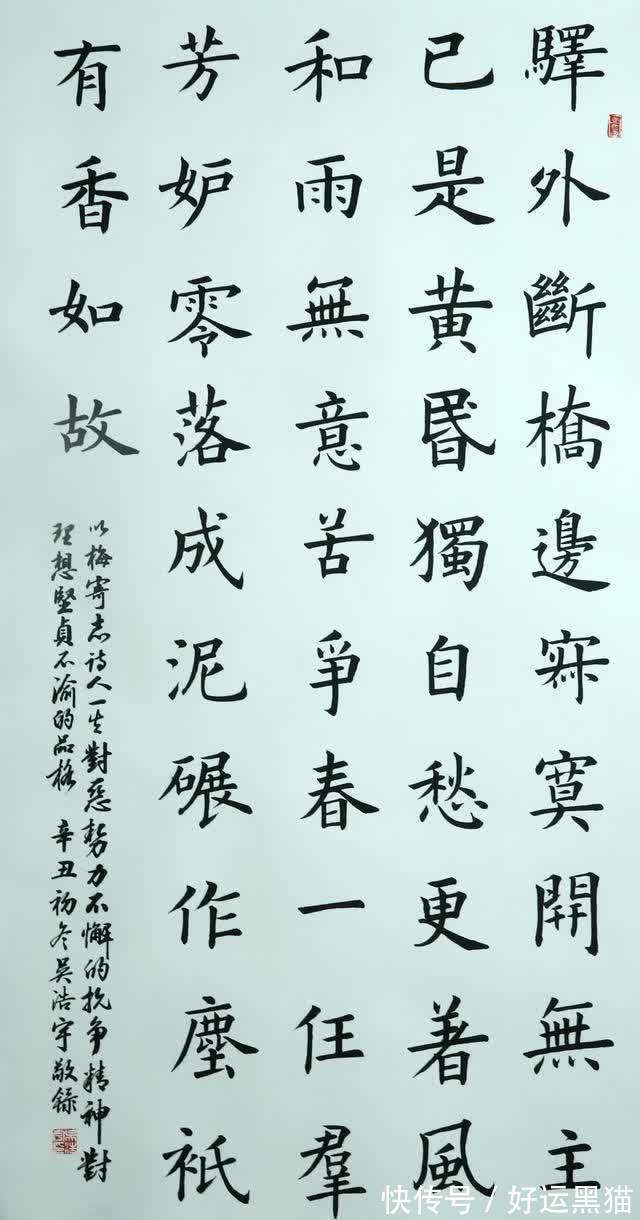 驛外斷橋邊寂寞開無主
已是黃昬獨自愁更著風
和雨無意苦爭春一任羣
芳妒零落成泥碾作塵衹
有香如故
以梅寄志诗人一生對惡勢力不懈的抗争精神對
理想堅貞不渝的品格 辛丑初冬吴浩宇敬錄
快传号/好运黑猫